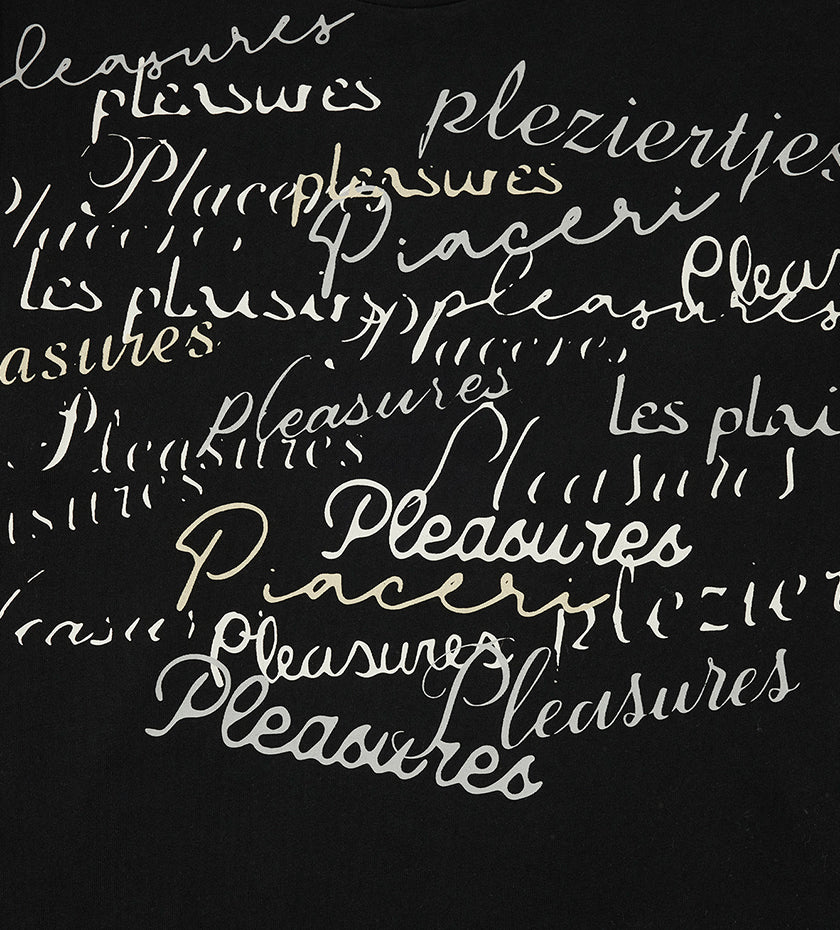 pleasures
pleasures
pleziertjes
Placeres
pleasures
Piaceri
Pleasur
les plaisirs
pleasures
Placeres
asures
Pleasures
les plai
Pleasures
Pleasures
asures
Pleasures
Piaceri
plezier
pleasures
Pleasures
Pleasures